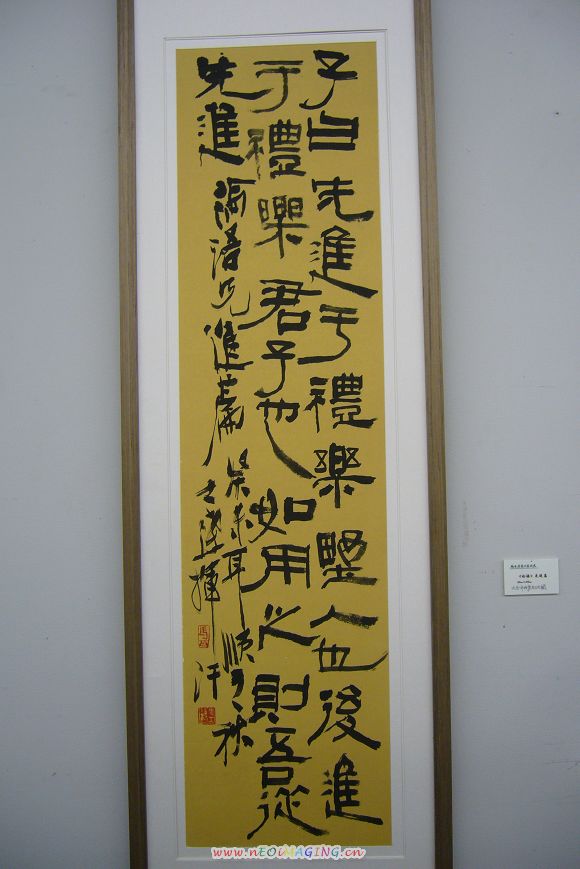 子曰先進于禮樂野人也後進
于禮樂君子也如用之則吾從
先進 論語先進篇
癸未耳順之秋
士 揮汗
《論語》先進篇
www.nEOiMAGiNG.cn